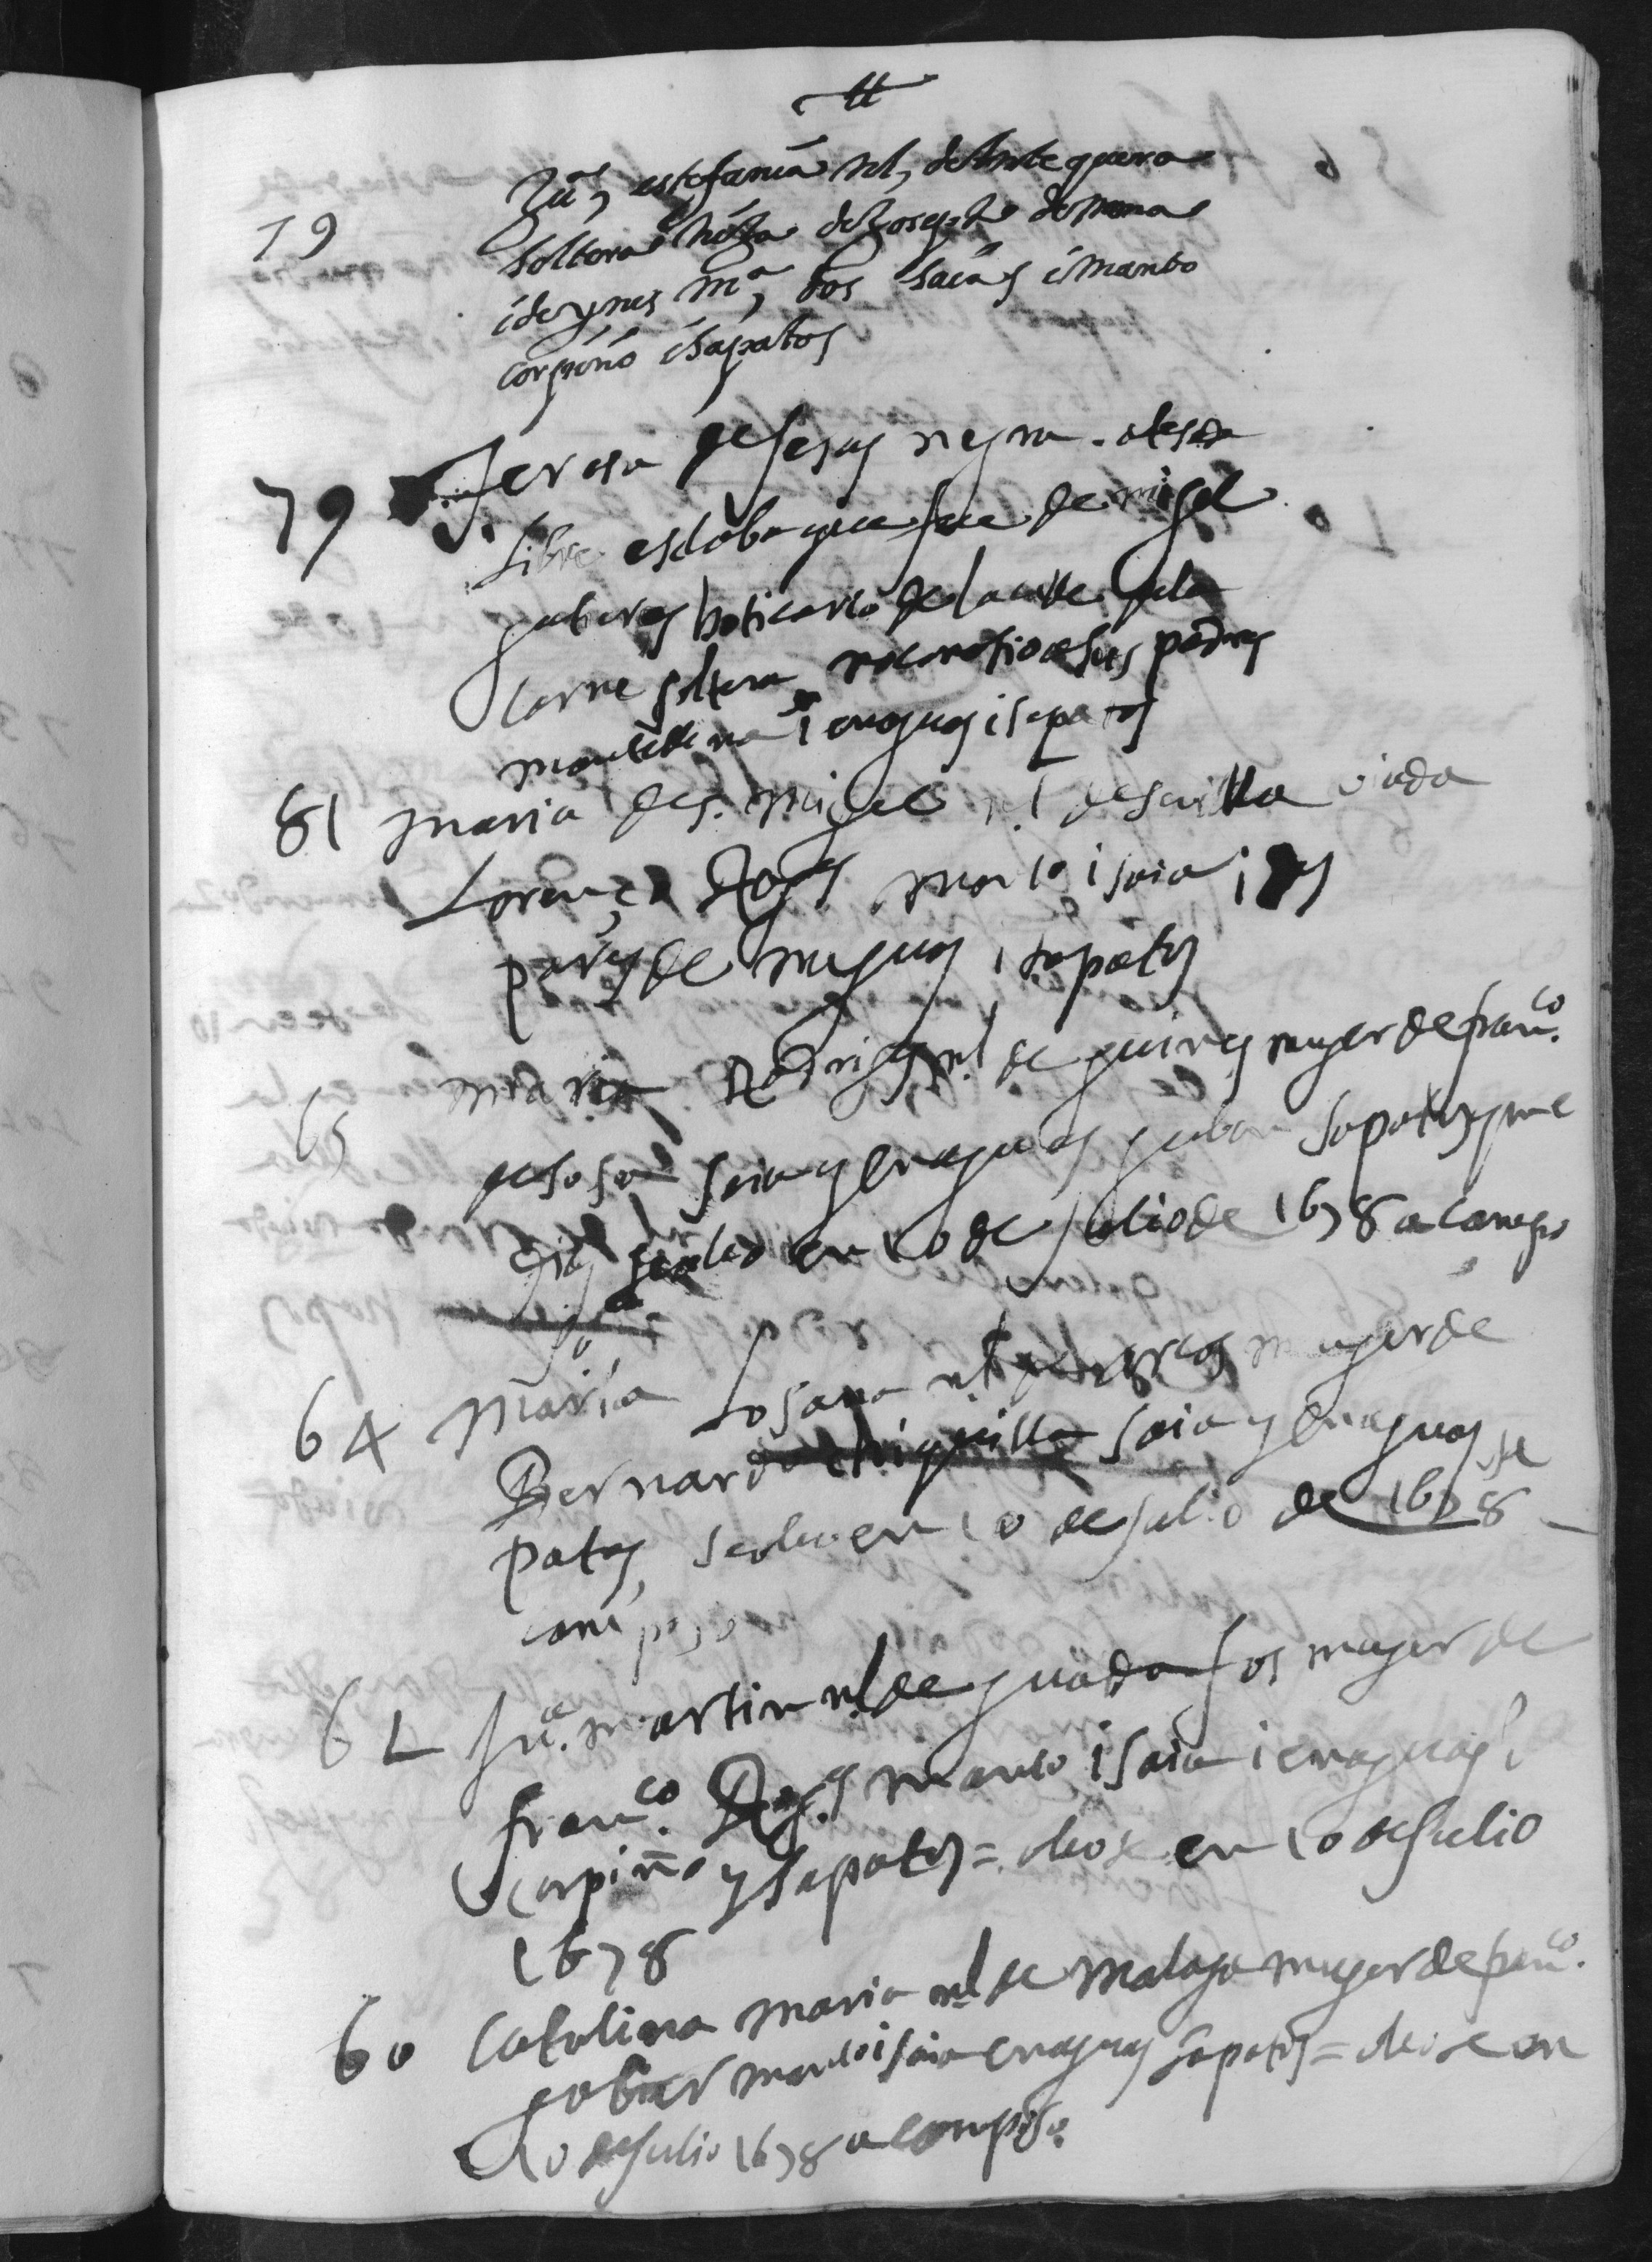 tt
79 Juª, estefania nl, de Antequera
soltera hija de Josephe de mena
i de ynes mª, dos saias i manto
corpiño i sapatos
79 Teresa de Jesus negra atesada
Libre esclaba que fue de migel
gutieres boticario de la calle de la
carne soltera no conosio a sus padres
mantellina i enaguas i sapatos
81 maria de s. miguel nl de sevilla viuda
Lorenço Rogs manto i saia i dos
pares de enaguas i sapatos
65 maria Rodrigs nl de quiros muger de franco
de sosa saia y enaguas jubon sapatos y me
dias se dio en 10 de julio de 1678 a campo
64 maria Losana nl de muger de
Bernardo chiquilla saia y enaguas sa
patos, se dio en 10 de julio de 1678
camposo
62 Juª. martin nl de guadajos muger de
franco. Rogs manto i saia i enaguas i
corpiño y sapatos = diose en 10 de Julio
1678
60 Catalina maria nl de malaga muger de franco.
manto i saia enaguas sapatos = diose en
10 de Julio 1678 a camposo